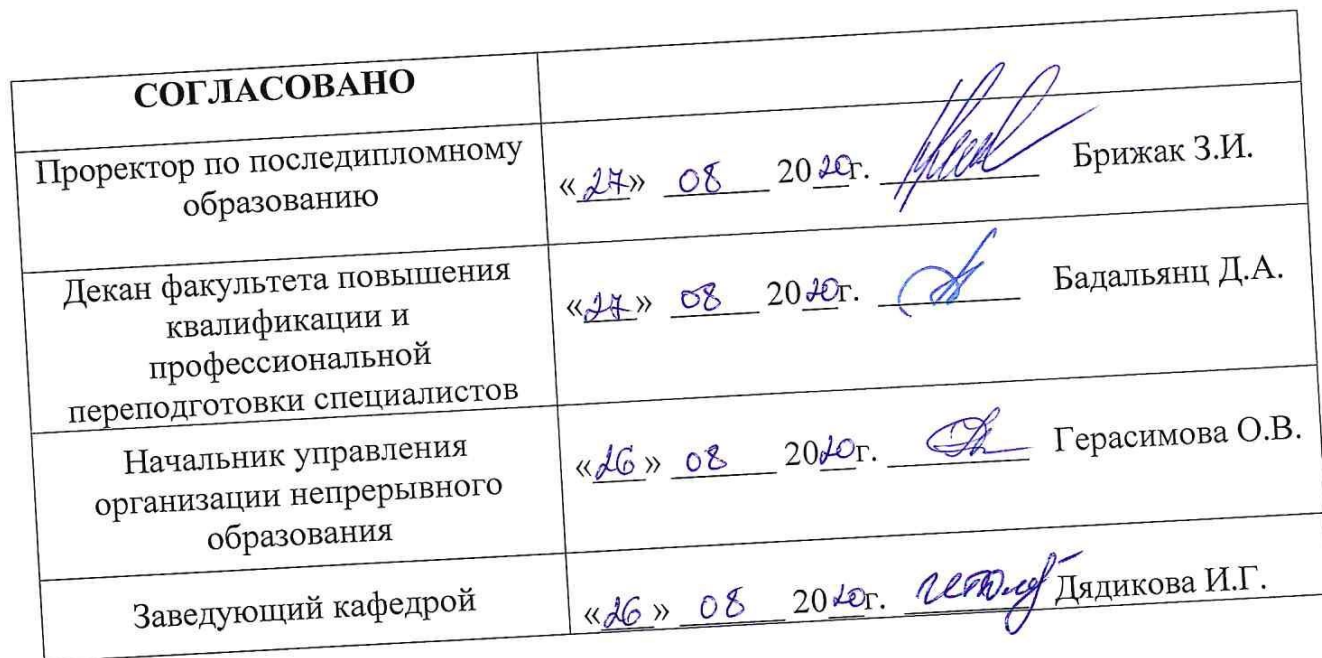 СОГЛАСОВАНО
Проректор по последипломному
образованию
«27» 08 2020г. Брижак З.И.
Декан факультета повышения
квалификации и
профессиональной
переподготовки специалистов
«27» 08 2020г. Бадальянц Д.А.
Начальник управления
организации непрерывного
образования
«26» 08 2020г. Герасимова О.В.
Заведующий кафедрой
«26» 08 2020г. Дядикова И.Г.